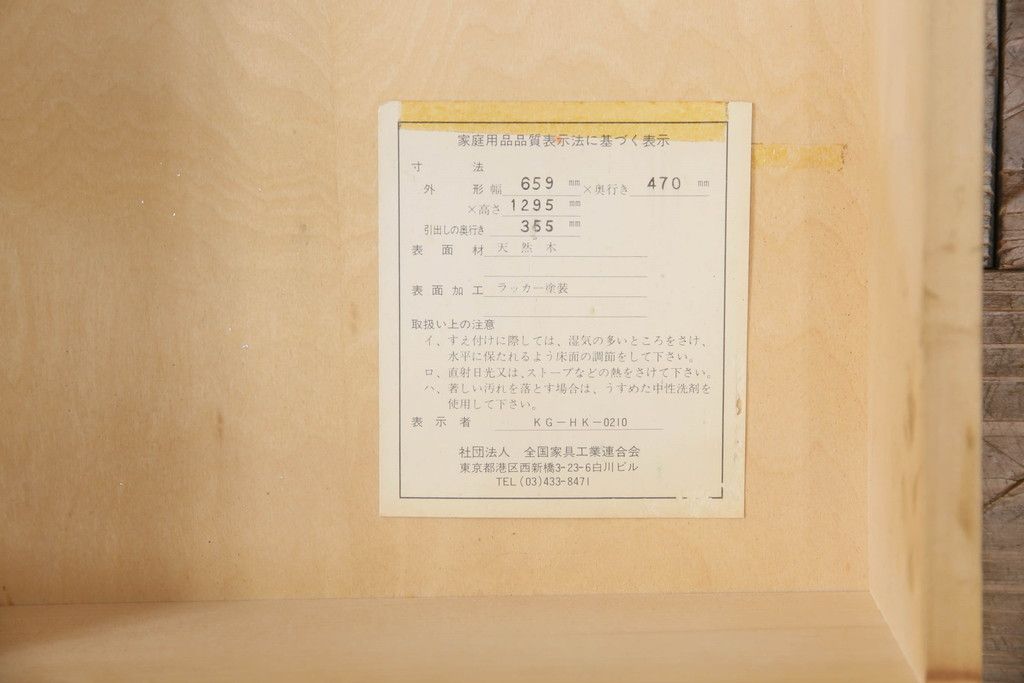 家庭用品品質表示法に基づく表示
寸法
外形 幅 659 mm ×奥行き 470 mm
×高さ 1295 mm
引出しの奥行き 355 mm
表面材 天然木
表面加工 ラッカー塗装
取扱い上の注意
イ、すえ付けに際しては、湿気の多いところをさけ、
水平に保たれるよう床面の調節をして下さい。
ロ、直射日光又は、ストーブなどの熱をさけて下さい。
ハ、著しい汚れを落とす場合は、うすめた中性洗剤を
使用して下さい。
表示者 KG-HK-0210
社団法人 全国家具工業連合会
東京都港区西新橋3-23-6白川ビル
TEL(03)433-8471